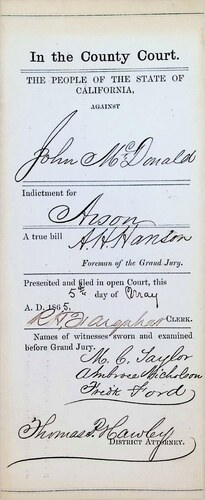 In the County Court.
THE PEOPLE OF THE STATE OF
CALIFORNIA,
AGAINST
John McDonald
Indictment for
Arson
A true bill A. H. Hanson
Foreman of the Grand Jury.
Presented and filed in open Court, this
5th day of May
A. D. 1865.
CLERK.
Names of witnesses sworn and examined
before Grand Jury.
M. C. Taylor
Ambrose Nicholson
Fredk Ford
Thomas P. Hawley
DISTRICT ATTORNEY.